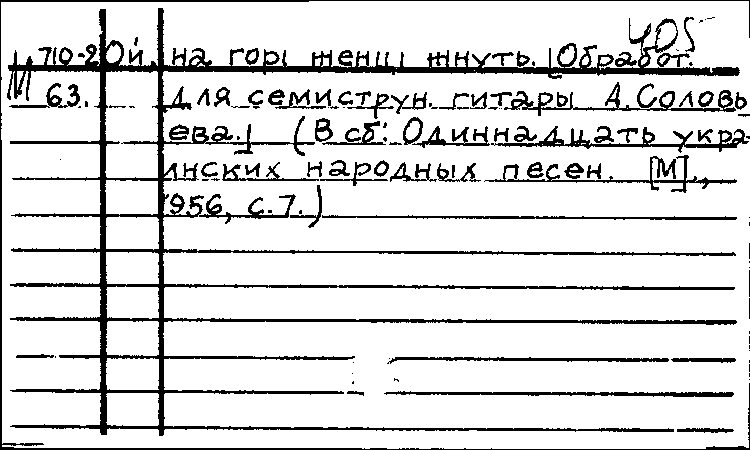 405
М 710-2 Ой, на горі женці жнуть. [Обработ.
63. для семиструн. гитары А. Соловь
ева.] (В сб: Одиннадцать укра-
инских народных песен. [М].,
1956, с. 7.)